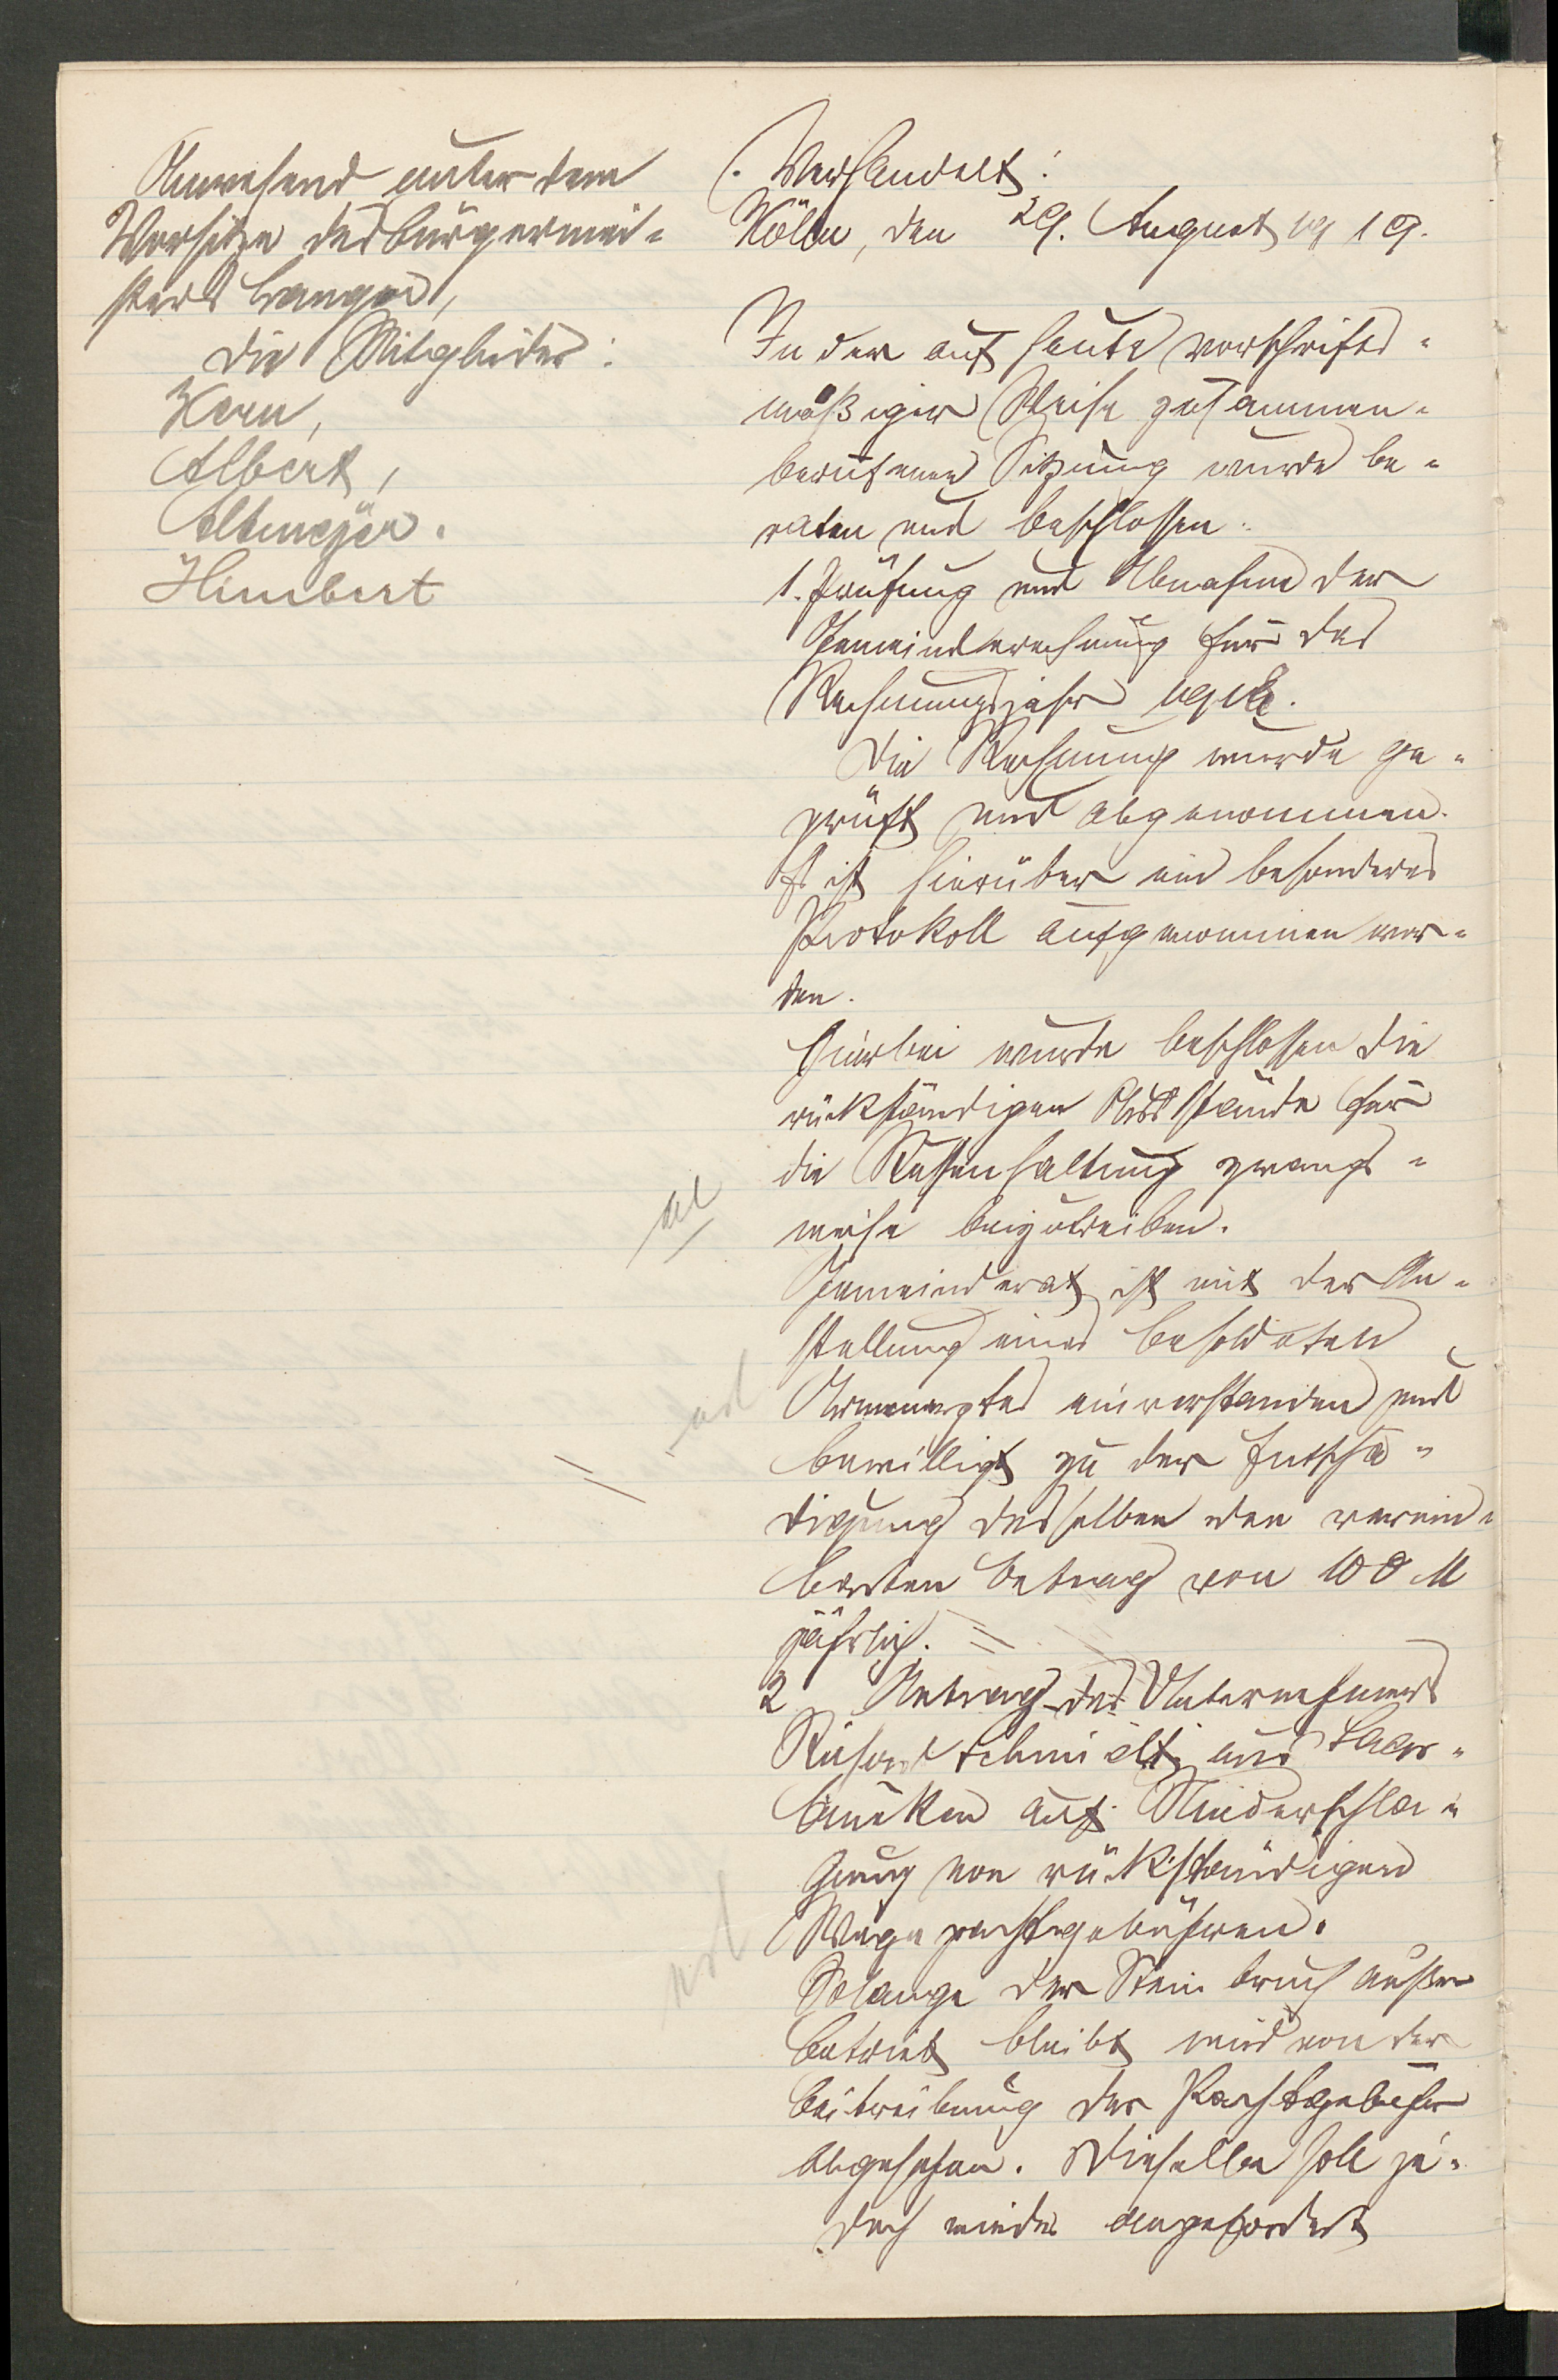 Anwesend unter dem
Vorsitze des Bürgermei-
sters Langer,
die Mitglieder:
Kern,
Albert,
Altmeyer.
Himbert
Verhandelt:
Kölln, den 29. August 1919.
In der auf heute vorschrifts-
mäßiger Weise zusammen-
berufenen Sitzung wurde be-
raten und beschlossen:
1. Prüfung und Abnahme der
Gemeinderechnung für das
Rechnungsjahr 1918.
Die Rechnung wurde ge-
prüft und abgenommen.
Es ist hierüber ein besonderes
Protokoll aufgenommen wor-
den.
Hierbei wurde beschlossen die
rückständigen Ausstände für
die haltung zwangs-
weise beizutreiben.
Gemeinderat ist mit der An-
stellung eines besoldeten
Armenarztes einverstanden und
bewilligt zu der Entschä-
digung desselben den verein-
barten Betrag von 100 M
jährlich.
2 Antrag des Unternehmers
Richard Schmidt aus Saar-
brücken auf Niederschla-
gung von rückständigen
Wegepachtgebühren.
Solange der Steinbruch außer
Betrieb bleibt wird von der
Beitreibung der Pachtgebühr
abgesehen. Dieselbe soll je-
doch wieder angefordert